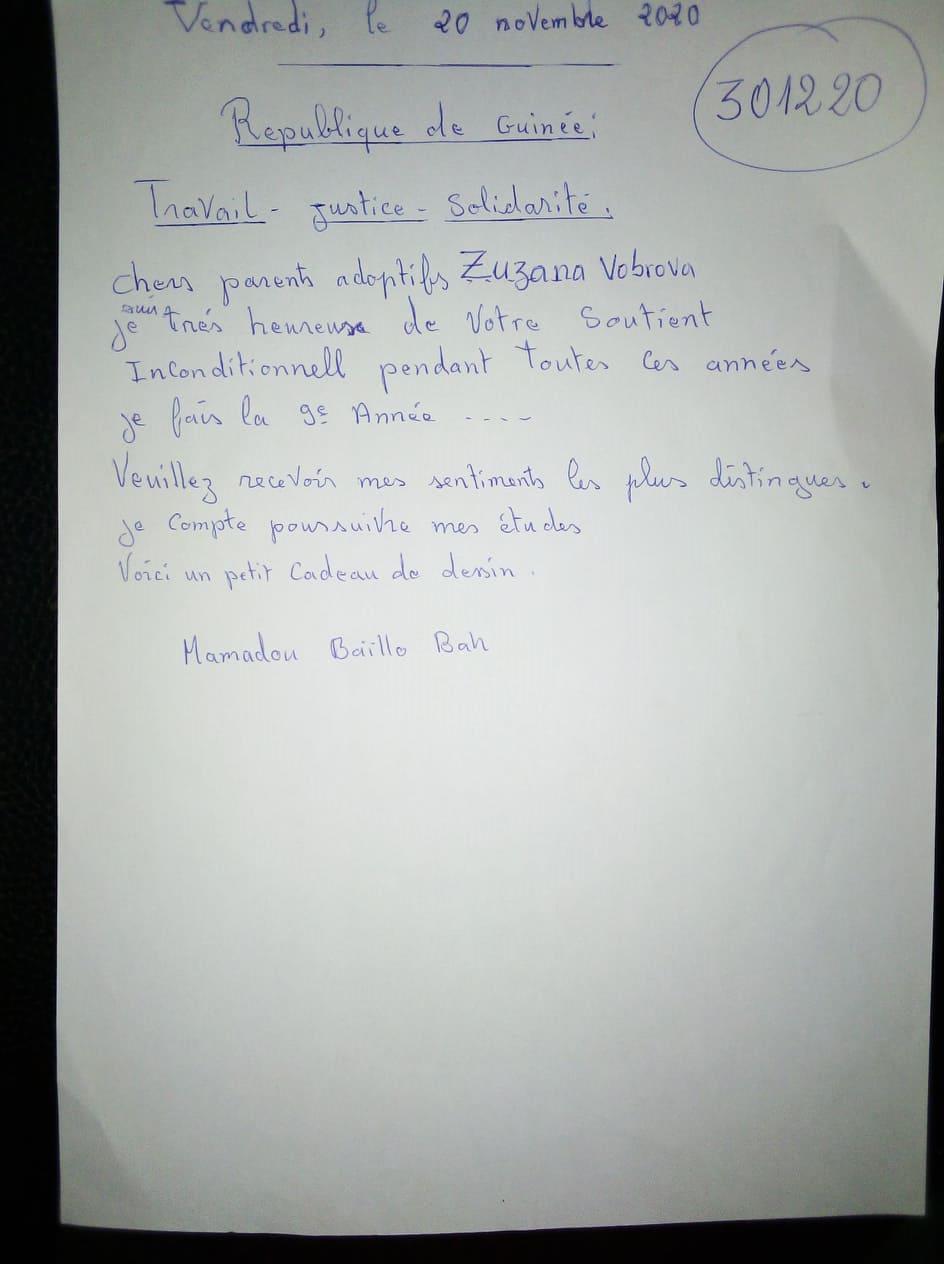 Vendredi, le 20 novembre 2020
301220
Republique de Guinée:
Travail - justice - Solidarité.
Chers parents adoptifs Zuzana Vobrova
je suis très heureuse de Votre Soutient
Inconditionnell pendant toutes ces années
je fais la 9e Année ....
Veuillez recevoir mes sentiments les plus distingues.
je Compte poursuivre mes études
Voici un petit Cadeau de dessin.
Mamadou Baillo Bah